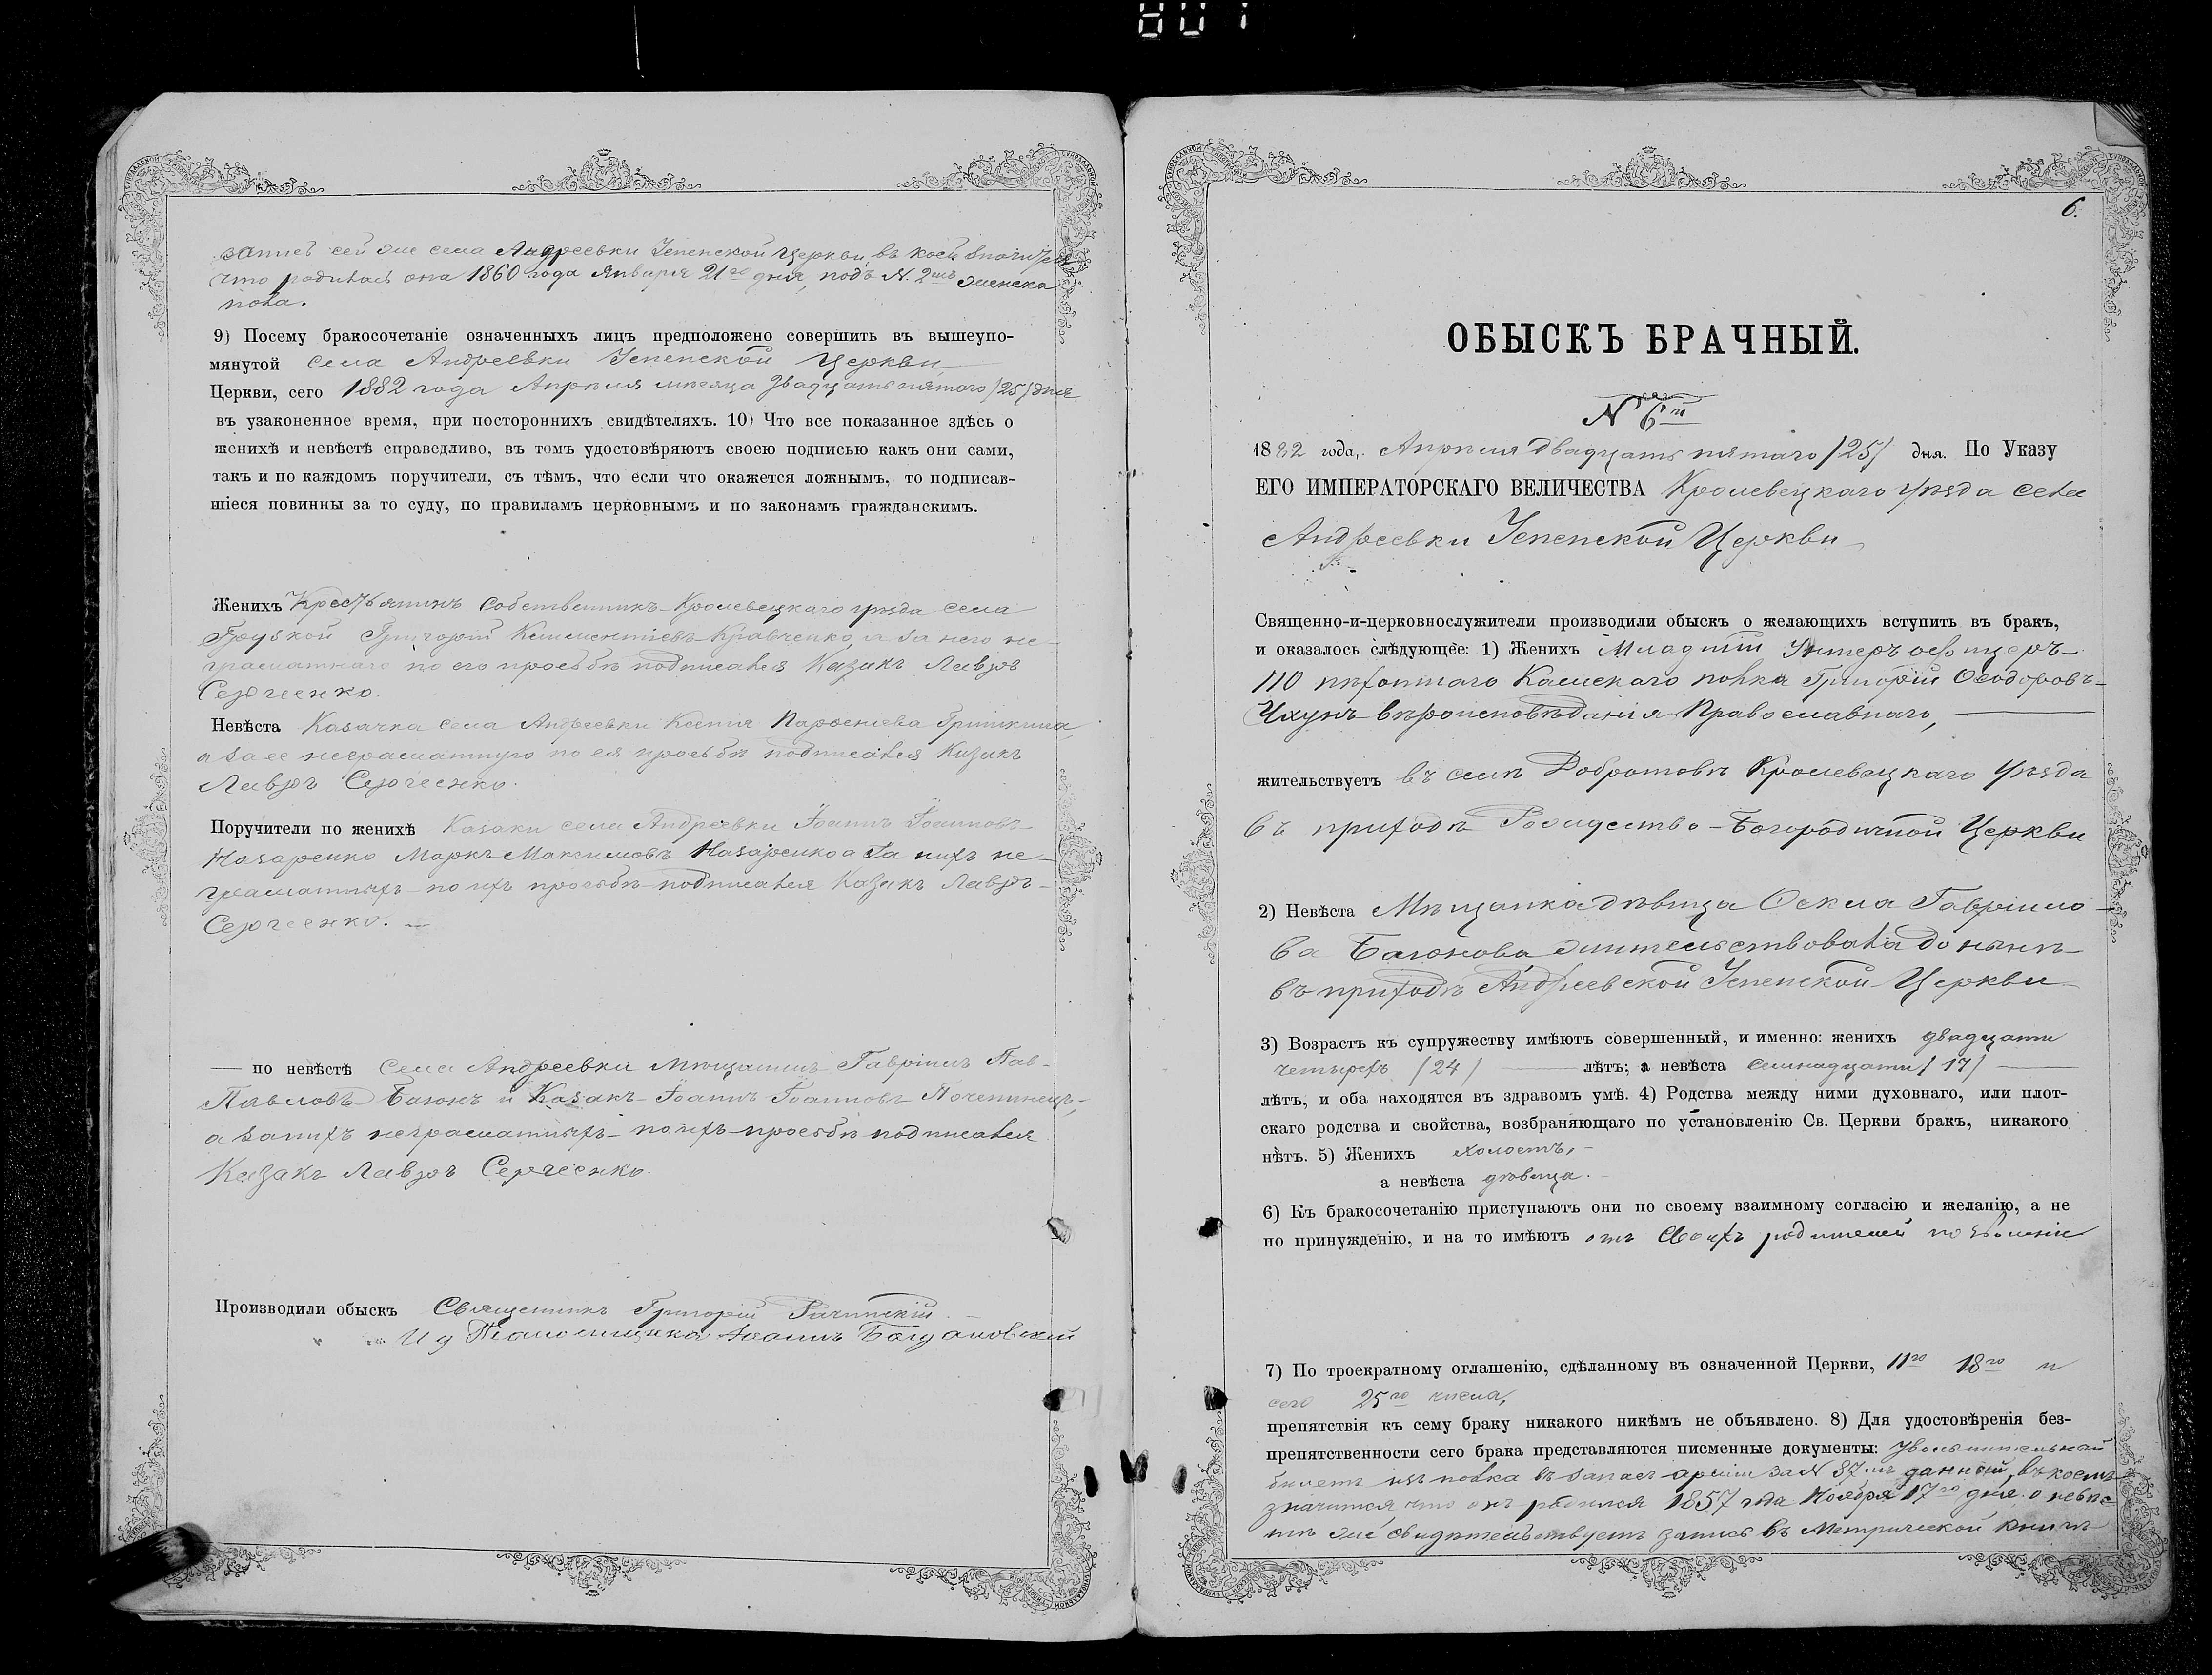 запись сей же села Андреевки Успенской Церкви, въ коей значится
что родилась она 1860 года Января 21го дня, подъ N. 2мъ женска
пола.
9) Посему бракосочетаніе означенныхъ лицъ предположено совершить въ вышеупо-
мянутой села Андреевки Успенской Церкви
Церкви, сего 1882 года Апрѣля мѣсяца двадцать пятаго /25/ дня
въ узаконенное время, при постороннихъ свидѣтеляхъ. 10) Что все показанное здѣсь о
женихѣ и невѣстѣ справедливо, въ томъ удостовѣряютъ своею подписью какъ они сами,
такъ и по каждомъ поручители, съ тѣмъ, что если что окажется ложнымъ, то подписав-
шіеся повинны за то суду, по правиламъ церковнымъ и по законамъ гражданскимъ.
Женихъ Крестьянинъ Собственникъ Кролевецкаго уѣзда села
Грузкой Григорій Климентіевъ Кравченко, а за него не-
грамотнаго по его просьбѣ подписался Казакъ Лавръ
Сергеенко.
Невѣста Казачка села Андреевки Ксенія Парфеніева Гришкина,
а за ее неграмотную по ея просьбѣ подписался Казакъ
Лавръ Сергеенко.
Поручители по женихѣ Казаки села Андреевки Іоаннъ Іоанновъ
Назаренко Маркъ Максимовъ Назаренко а за нихъ не-
грамотныхъ по ихъ просьбѣ подписался Казакъ Лавръ
Сергеенко.
по невѣстѣ Села Андреевки Мѣщанинъ Гавріилъ Пав-
Павловъ Багонъ и Казакъ Іоаннъ Іоанновъ
а занихъ неграмотныхъ по ихъ просьбѣ подписался
Казакъ Лавръ Сергеенко.
Производили обыскъ Священникъ Григорій
И д Псаломщика Іоаннъ Богдановскій
6.
ОБЫСКЪ БРАЧНЫЙ.
N 6й
1882 года, Апрѣля двадцать пятаго /25/ дня. По Указу
ЕГО ИМПЕРАТОРСКАГО ВЕЛИЧЕСТВА Кролевецкаго уѣзда села
Андреевки Успенской Церкви
Священно-и-церковнослужители производили обыскъ о желающихъ вступить въ бракъ,
и оказалось слѣдующее: 1) Женихъ Младшій Унтеръ офицеръ
110 пѣхотнаго Камскаго полка Григорій Ѳеодоровъ
Чхунъ вѣроисповѣданія Православнаго,
жительствуетъ въ селѣ Добротовѣ Кролевецкаго Уѣзда
въ приходѣ Рождество-Богородичной Церкви
2) Невѣста Мѣщанка дѣвица Ѳекла Гавріило
ва Багонова жительствовала до нынѣ
въ приходѣ Андреевской Успенской Церкви
3) Возрастъ къ супружеству имѣютъ совершенный, и именно: женихъ двадцати
четырехъ /24/ лѣтъ; а невѣста семнадцати /17/
лѣтъ, и оба находятся въ здравомъ умѣ. 4) Родства между ними духовнаго, или плот-
скаго родства и свойства, возбраняющаго по установленію Св. Церкви бракъ, никакого
нѣтъ. 5) Женихъ холостъ,
а невѣста дѣвица.
6) Къ бракосочетанію приступаютъ они по своему взаимному согласію и желанію, а не
по принужденію, и на то имѣютъ отъ своихъ родителей позволеніе
7) По троекратному оглашенію, сдѣланному въ означенной Церкви, 11го 18го и
сего 25го числа,
препятствія къ сему браку никакого никѣмъ не объявлено. 8) Для удостовѣренія без-
препятственности сего брака представляются писменные документы: увольнительный
билетъ изъ полка въ запасъ арміи за N 87мъ данный, въ коемъ
значится, что онъ родился 1857 года Ноября 17го дня. о невѣс
тѣ же свидѣтельствуетъ запись въ Метрической книгѣ